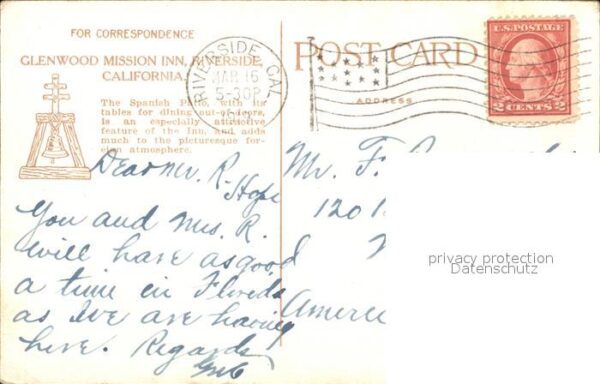 FOR CORRESPONDENCE
GLENWOOD MISSION INN, RIVERSIDE,
CALIFORNIA.
The Spanish Patio, with its
tables for dining out-of-doors,
is an especially attractive
feature of the Inn, and adds
much to the picturesque for-
eign atmosphere.
RIVERSIDE, CAL.
MAR 16
5-30P
POST CARD
ADDRESS
U.S. POSTAGE
2 CENTS 2
Dear Mr. R.
Hope
You and Mrs. R.
will have as good
a time in Florida
as we are having
here. Regards
Mr. F.
1201
Americ
privacy protection
Datenschutz